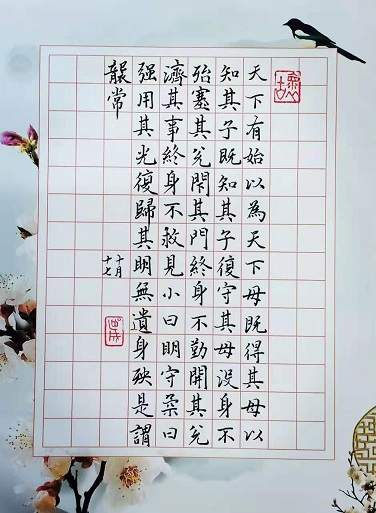 天下有始以為天下母既得其母以
知其子既知其子復守其母没身不
殆塞其兌閉其門終身不勤開其兌
濟其事終身不救見小曰明守柔曰
强用其光復歸其明無遺身殃是謂
襲常
十月
十七